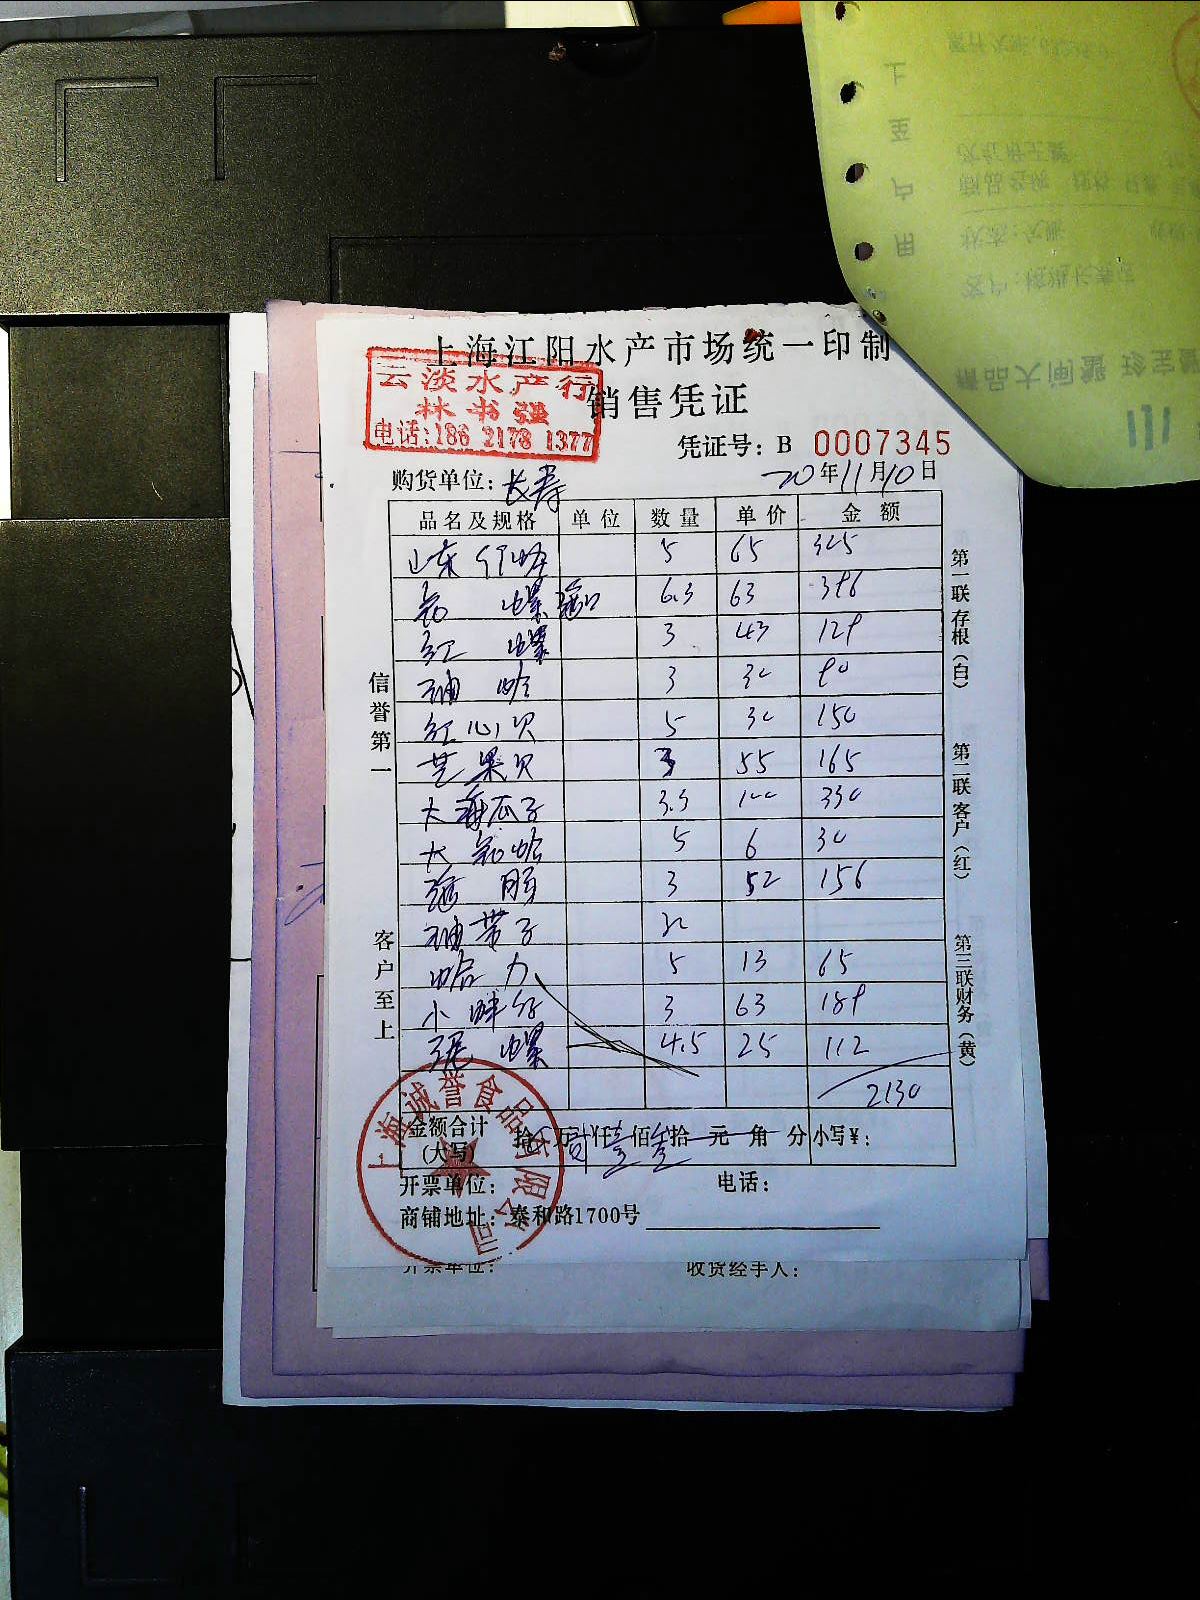 上海江阳水产市场统一印制
云淡水产行
林书强
电话:186 2178 1377
销售凭证
凭证号: B 0007345
购货单位: 长寿 20年11月10日
品名及规格 单位 数量 单价 金额
山东 5 65 325
螺 6.3 63 396
红螺 3 43 129
3 30 90
红心贝 5 30 150
芒果贝 3 55 165
大海瓜子 3.3 100 330
大 蛤 5 6 30
3 52 156
带子
蛤 5 13 65
小 3 63 189
螺 4.5 25 112
2130
金额合计(大写) 拾 万 贰仟壹佰叁拾 元 角 分 小写¥:
开票单位: 电话:
商铺地址: 泰和路1700号
上海诚誉食品有限公司
信誉第一
客户至上
第一联存根(白)
第二联客户(红)
第三联财务(黄)
开票单位: 收货经手人:
上至户用